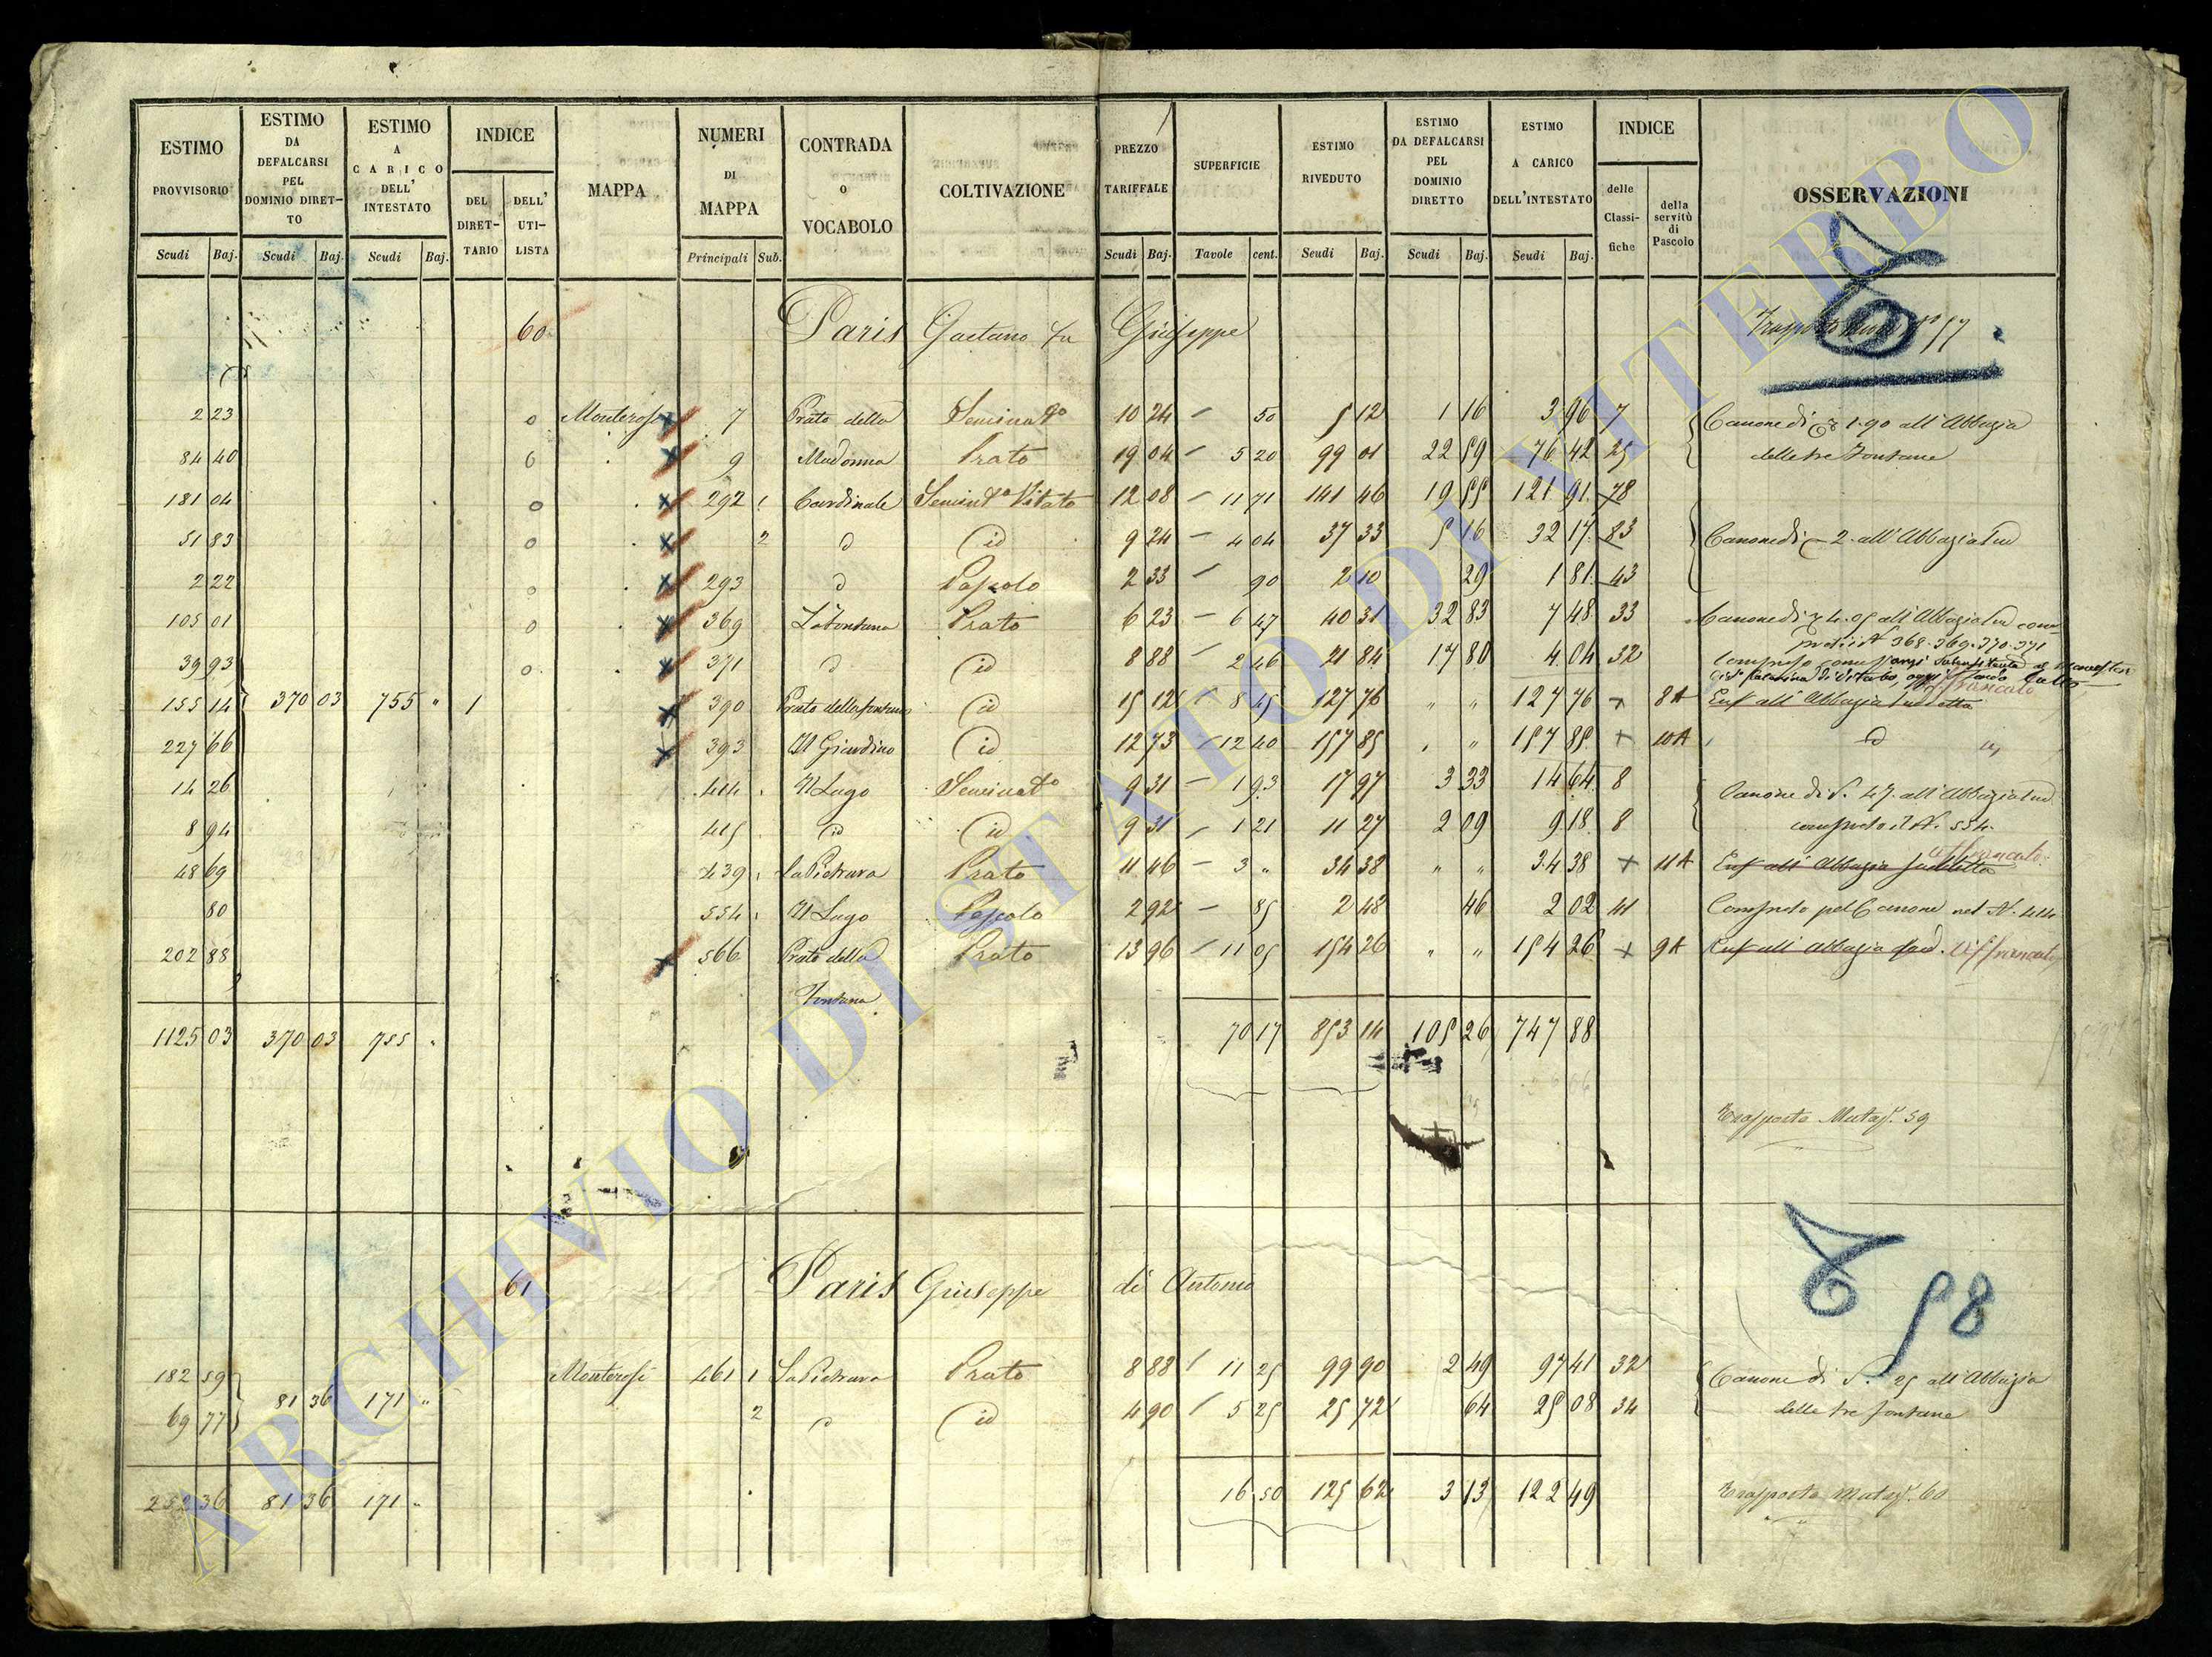 ESTIMO PROVVISORIO Scudi Baj.
ESTIMO DA DEFALCARSI PEL DOMINIO DIRET-TO Scudi Baj.
ESTIMO A CARICO DELL' INTESTATO Scudi Baj.
INDICE DEL DIRET-TARIO DELL' UTI-LISTA
MAPPA
NUMERI DI MAPPA Principali Sub.
CONTRADA O VOCABOLO
COLTIVAZIONE
PREZZO TARIFFALE Scudi Baj.
SUPERFICIE Tavole cent.
ESTIMO RIVEDUTO Scudi Baj.
ESTIMO DA DEFALCARSI PEL DOMINIO DIRETTO Scudi Baj.
ESTIMO A CARICO DELL'INTESTATO Scudi Baj.
INDICE delle Classi-fiche della servitù di Pascolo
OSSERVAZIONI
60 Paris Gaetano fu Giuseppe 57
2 23 0 Monterosi 7 Prato della Seminato 10 24 50 5 12 1 16 3 96 7 Canone di 1.90 all'Abbazia
84 40 0 9 Madonna Prato 19 04 5 20 99 01 22 59 76 42 25 delle tre Fontane
181 04 0 292 1 Cardinale Seminto Vitato 12 08 11 71 141 46 19 55 121 91 78
51 83 0 2 d id 9 24 4 04 37 33 5 16 32 17 83 Canone di 2. all'Abbazia sud
2 22 0 293 d Pascolo 2 33 90 2 10 29 1 81 43
105 01 0 369 La Fontana Prato 6 23 6 47 40 31 32 83 7 48 33 Canone di 4.05 all'Abbazia sud com
presi i N 368.369.370.371
39 93 0 371 d id 8 88 2 46 21 84 17 80 4 04 32 Compreso come
155 14 370 03 755 " 1 390 Prato della fontana id 15 12 8 45 127 76 " " 127 76 + 8A Enf all'Abbazia suddetta affrancato
227 66 393 Il Giardino id 12 73 12 40 157 85 " " 157 85 + 10A d
14 26 414 Il Lago Seminato 9 31 1 93 17 97 3 33 14 64 8 Canone di S. 47. all'Abbazia sud
8 94 415 id id 9 31 1 21 11 27 2 09 9 18 8 compreso il N. 554.
48 69 439 La Pietrara Prato 11 46 3 " 34 38 " " 34 38 + 11A Enf all'Abbazia suddetta affrancato
80 554 Il Lago Pascolo 2 92 85 2 48 46 2 02 41 Compreso pel Canone nel N. 414
202 88 566 Prato della Prato 13 96 11 05 154 26 " " 154 26 + 9A Enf all'Abbazia sud. affrancato
Fontana
1125 03 370 03 755 " 70 17 853 14 105 26 747 88
Trasporto Mataf. 59
61 Paris Giuseppe di Antonio
58
182 59 Monterosi 461 1 La Pietrara Prato 8 88 11 25 99 90 2 49 97 41 32 Canone di S. 25 all'Abbazia
81 36 171 "
69 77 2 d id 4 90 5 25 25 72 64 25 08 34 delle tre fontane
252 36 81 36 171 " 16 50 125 62 3 13 122 49 Trasporto Mataf. 60
ARCHIVIO DI STATO DI VITERBO